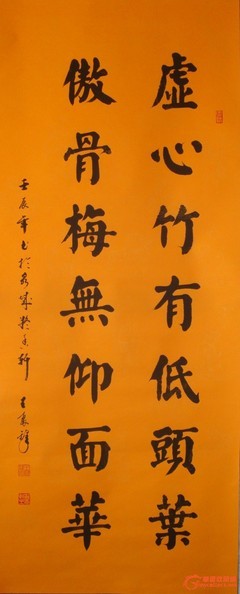 虛心竹有低頭葉
傲骨梅無仰面華
壬辰年書於